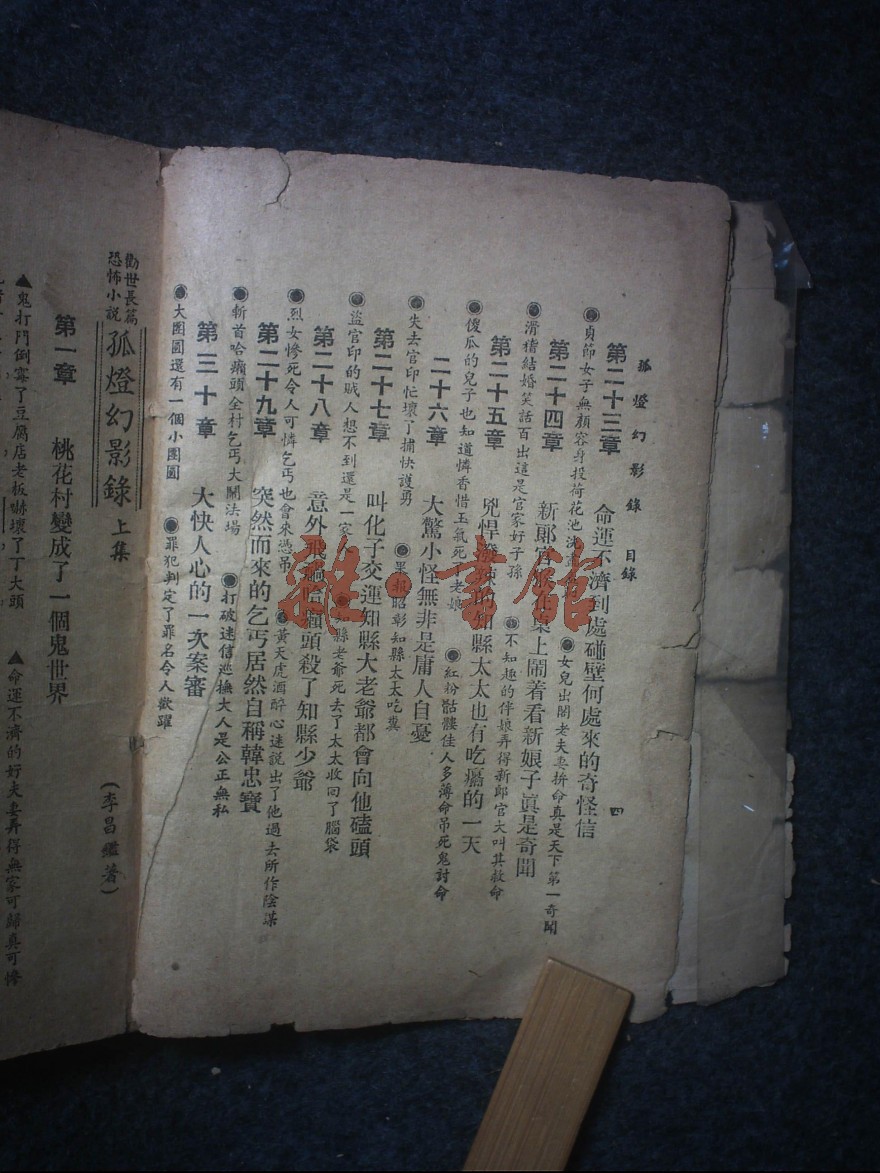 孤燈幻影錄 目錄
四
第二十三章 命運不濟到處碰壁何處來的奇怪信
●貞節女子無顏容身投荷花池 ●女兒出閣老夫妻拚命真是天下第一奇聞
第二十四章 新郎官 集上鬧着看新娘子真是奇聞
●滑稽結婚笑話百出這是官家好子孫 ●不知趣的伴娘弄得新郎官大叫其救命
第二十五章 兇悍潑辣的知縣太太也有吃癟的一天
●傻瓜的兒子也知道憐香惜玉氣死了老娘 ●紅粉骷髏佳人多薄命吊死鬼討命
二十六章 大驚小怪無非是庸人自憂
●失去官印忙壞了捕快護勇 ●果報昭彰知縣太太吃糞
第二十七章 叫化子交運知縣大老爺都會向他磕頭
●盜官印的賊人想不到還是一家人 ●知縣老爺死去了太太收回了腦袋
第二十八章 意外飛禍哈癩頭殺了知縣少爺
●烈女慘死令人可憐乞丐也會來憑吊 ●黃天虎酒醉心迷說出了他過去所作陰謀
第二十九章 突然而來的乞丐居然自稱韓忠寶
●斬首哈癩頭全村乞丐大鬧法場 ●打破迷信巡撫大人是公正無私
第三十章 大快人心的一次案審
●大團圓還有一個小團圓 ●罪犯判定了罪名令人歡躍
勸世長篇
恐怖小說
孤燈幻影錄 上集
(李昌鑑著)
第一章 桃花村變成了一個鬼世界
▲鬼打門倒霉了豆腐店老板嚇壞了丁大頭 ▲命運不濟的好夫妻弄得無家可歸真可慘
雜·書館